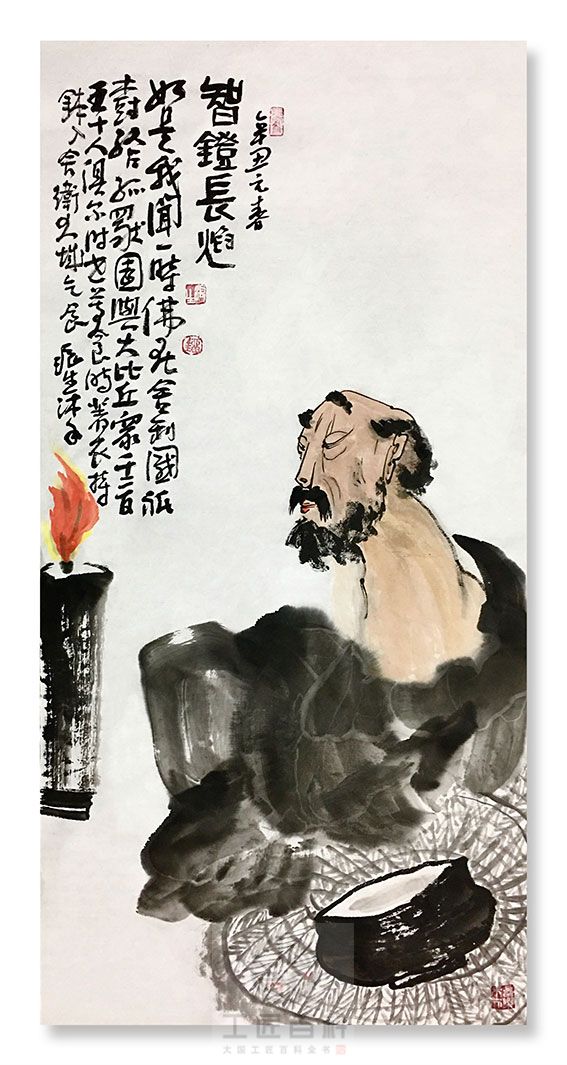 辛丑元春
智鐙長焰
如是我聞一時佛在舍利國祇
樹給孤獨園與大比丘眾千二百
五十人俱尔时世尊食時著衣持
鉢入舍衛大城乞食 沐手
工匠百科
大国工匠百科全书